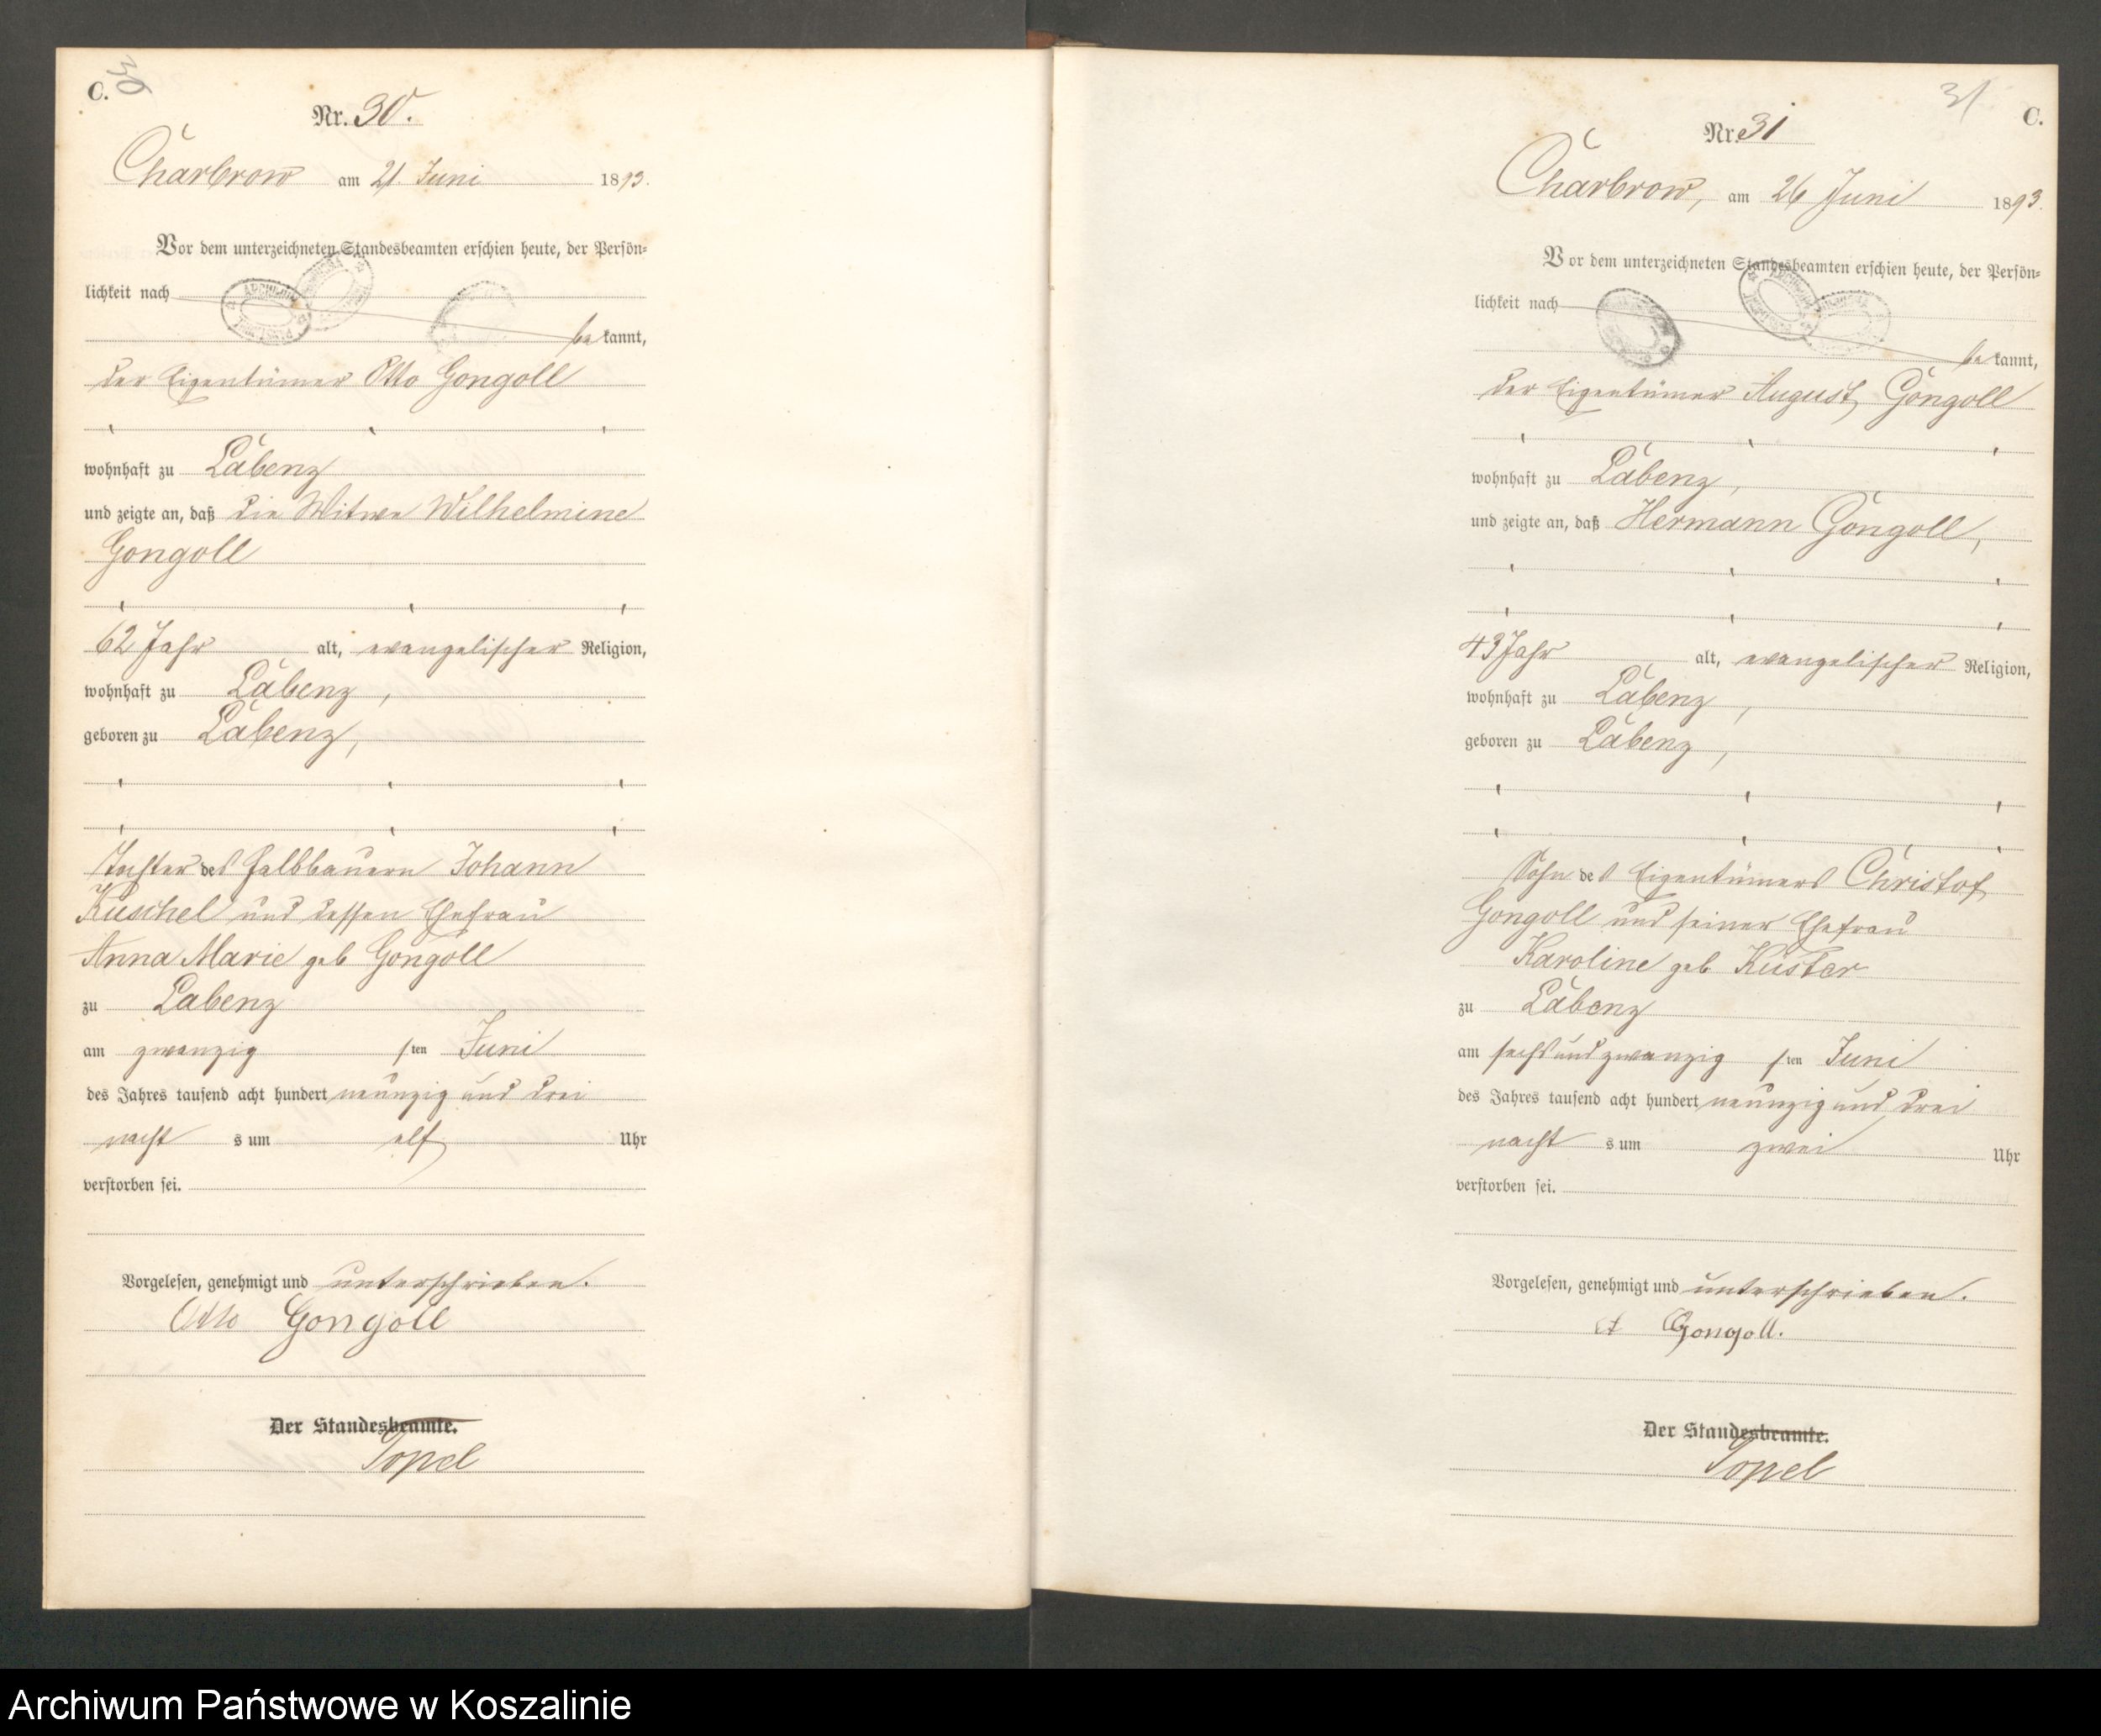 C.
30
Nr. 30.
Charbrow am 21 Juni 1893.
Vor dem unterzeichneten Standesbeamten erschien heute, der Persön-
lichkeit nach
be kannt,
der Eigentümer Otto Gongoll
wohnhaft zu Labenz
und zeigte an, daß die Witwe Wilhelmine
Gongoll
62 Jahr alt, evangelischer Religion,
wohnhaft zu Labenz,
geboren zu Labenz,
Tochter des Halbbauern Johann
Kuschel und dessen Ehefrau
Anna Marie geb Gongoll
zu Labenz
am zwanzig sten Juni
des Jahres tausend acht hundert neunzig und drei
nacht s um elf Uhr
verstorben sei.
Vorgelesen, genehmigt und unterschrieben.
Otto Gongoll
Der Standesbeamte.
Topel
31
C.
Nr. 31
Charbrow, am 26 Juni 1893.
Vor dem unterzeichneten Standesbeamten erschien heute, der Persön-
lichkeit nach
be kannt,
der Eigentümer August Gongoll
wohnhaft zu Labenz,
und zeigte an, daß Hermann Gongoll,
43 Jahr alt, evangelischer Religion,
wohnhaft zu Labenz,
geboren zu Labenz,
Sohn des Eigentümers Christof
Gongoll und seiner Ehefrau
Karoline geb Küster
zu Labenz
am sechsundzwanzig sten Juni
des Jahres tausend acht hundert neunzig und drei
nacht s um zwei Uhr
verstorben sei.
Vorgelesen, genehmigt und unterschrieben.
A Gongoll.
Der Standesbeamte.
Topel
Archiwum Państwowe w Koszalinie